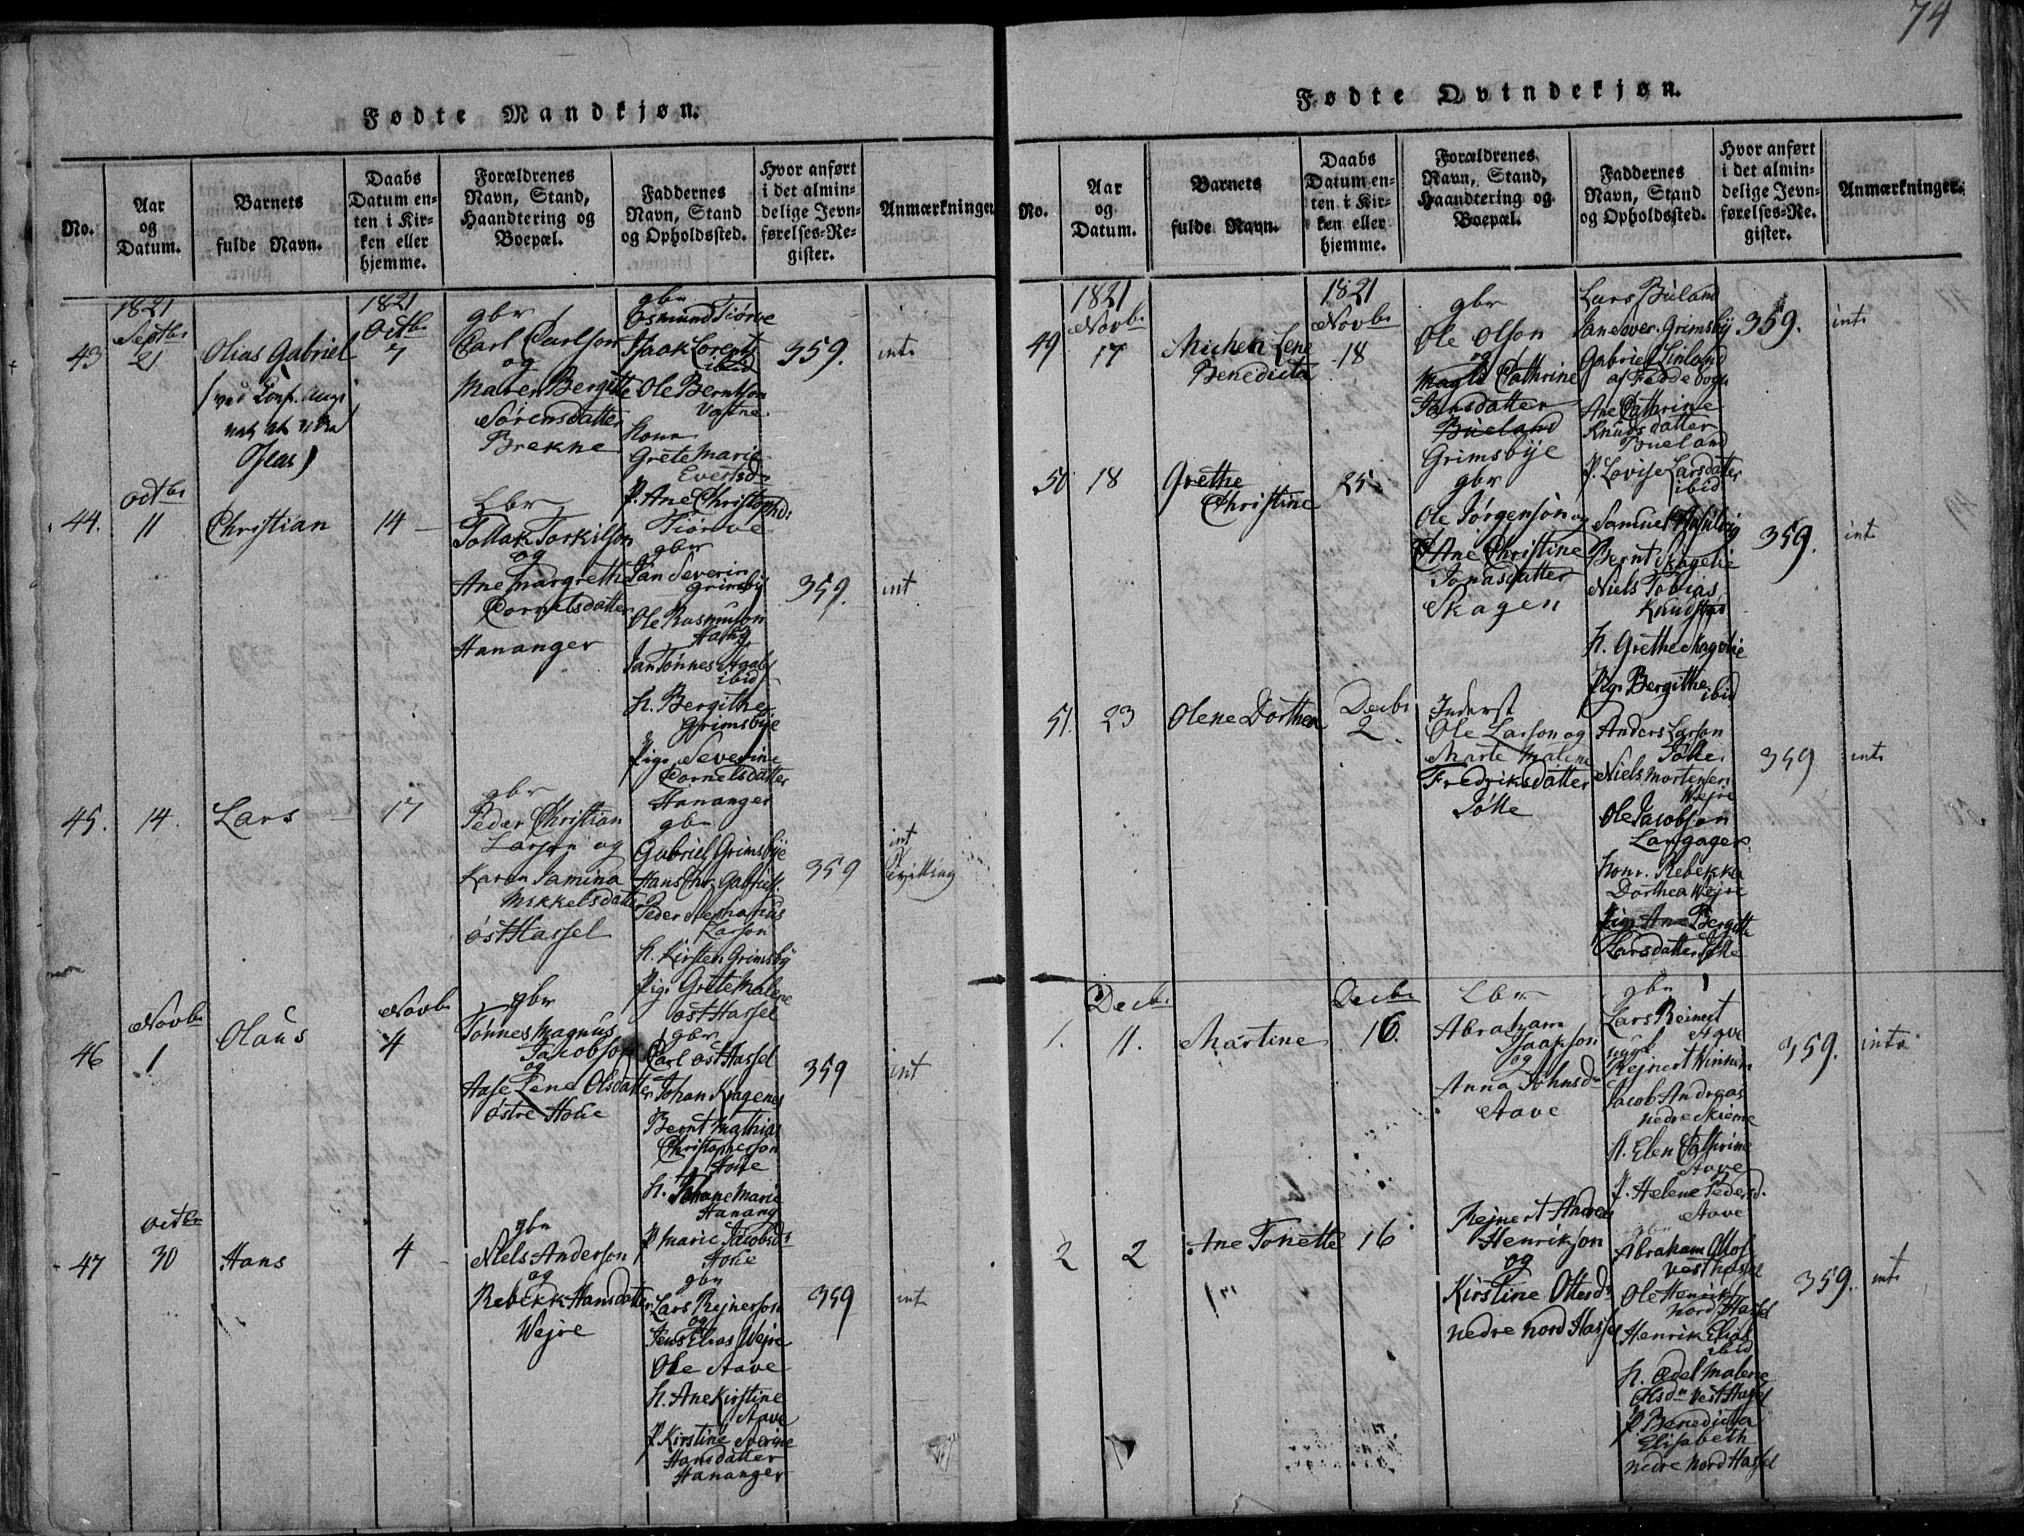 74
Fødte Mandkjøn.
No.
Aar
og
Datum.
Barnets
fulde Navn.
Daabs
Datum en-
ten i Kir-
ken eller
hjemme.
Forældrenes
Navn, Stand,
Haandtering og
Boepæl.
Faddernes
Navn, Stand
og Opholdssted.
Hvor anført
i det almin-
delige Jevn-
førelses-Re-
gister.
Anmærkninger
1821
Septbr
43
21
Olias Gabriel
1821
Octbr
7
gbr
Carl Carlson
og
Maren Bergitte
Sørensdatter
Brekne
gbr
Osmund Tiørve
Isaak Lorents
ibid
Ole Berntson
Vatne
Kone
Grete Marie
Evertsdr
P. Ane Christophd:
Tiørve
359.
int
octbr
44.
11
Christian
14
Lbr
Tollak Torkilson
og
Ane Margrethe
Cornelsdatter
Hananger
gbr
Jan Severin
Grimsby
Ole Rasmuson
Haug
Jan Tønnes
ibid
K. Bergithe
Grimsbye
Pige Severine
Cornelsdatter
Hananger
359.
int
45.
14.
Lars
17
gbr
Peder Christian
Larson og
Karen Jamina
Mikkelsdatter
østHassel
gbr
Gabriel Grimsbye
Hans Chr. Gabriels.
Peder Stephanus
Larson
K. Kirsten Grimsby
Pige Grete Malene
østHassel
359
int
Novbr
46
1
Olaus
Novbr
4
gbr
Tønnes Magnus
Jacobson
og
Aase Lene Olsdatter
østre Houe
gbr
Carl østHassel
Johan Kragenes
Bernt Mathias
Christopherson
Houe
K. Johane Marie
Hanang
P Marie Jacobsd:
Houe
359
int
octbr
47
30
Hans
4
gbr
Niels Anderson
og
Rebekk Hansdatter
Wejre
gbr
Lars Rejnerson
og
Jens Elias Wejre
Ole Aave
K. Ane Kirstine
Aave
P Kirstine Sverine
Hansdatter
Hananger
359
int
Fødte Qvindekjøn.
No.
Aar
og
Datum.
Barnets
fulde Navn.
Daabs
Datum en-
ten i Kir-
ken eller
hjemme.
Forældrenes
Navn, Stand,
Haandtering og
Boepæl.
Faddernes
Navn, Stand
og Opholdssted.
Hvor anført
i det almin-
delige Jevn-
førelses-Re-
gister.
Anmærkninger.
1821
Novbr
49
17
Lene
Benedicta
1821
Novbr
18
gbr
Ole Olson
og
Magle Cathrine
Jansdatter
Büeland
Grimsbye
Lars Büland
Jan Sover. Grimsby
Gabriel Sinland
af Fedde Sogn
Ane Cathrine
Knudsdatter
Bueland
P. Lovise Larsdatter
ibid
359.
int
50
18
Grethe
Christine
25
gbr
Ole Jørgenson og
Ane Christine
Jonasdatter
Skagen
Samuel
Bernt Skagelie
Niels Tobias
Knudstad
K. Grethe Skagelie
Pige Bergithe
ibid
359.
int
51.
23
Olene Dorthea
Decbr
2
Inderst
Ole Larson og
Marte Maline
Fredriksdatter
Jølle
Anders Larson
Jølle
Niels Mortensen
Wejre
Ole Jacobson
Langager
Kone Rebekka
Dorthea Wejre
Pige Ane Bergitte
Larsdatter Jølle
359
int
Decbr
1.
11.
Martine
Decbr
16.
Lbr
Abraham
Isaakson
og
Anna Johnsdr
Aave
gbr
Lars Reinert
Aave
ungk
Rejnert
Jacob Andreas
nedre Skieme
K. Elen Cathrine
Aave
P. Helene Pedersd.
Aave
359.
int
2
2
Ane Tonette
16
Rejnert Andrea
Henrikson
og
Kirstine Ottersd:
nedre nord Hassel
gbr
Abraham Ottos
VestHassel
Ole Henrik
nord Hassel
Henrik Elias
ibid
K. Ædel Malene
Olsdr VestHassel
P Benedicta
Elisabeth
nedre nord Hassel
359.
int